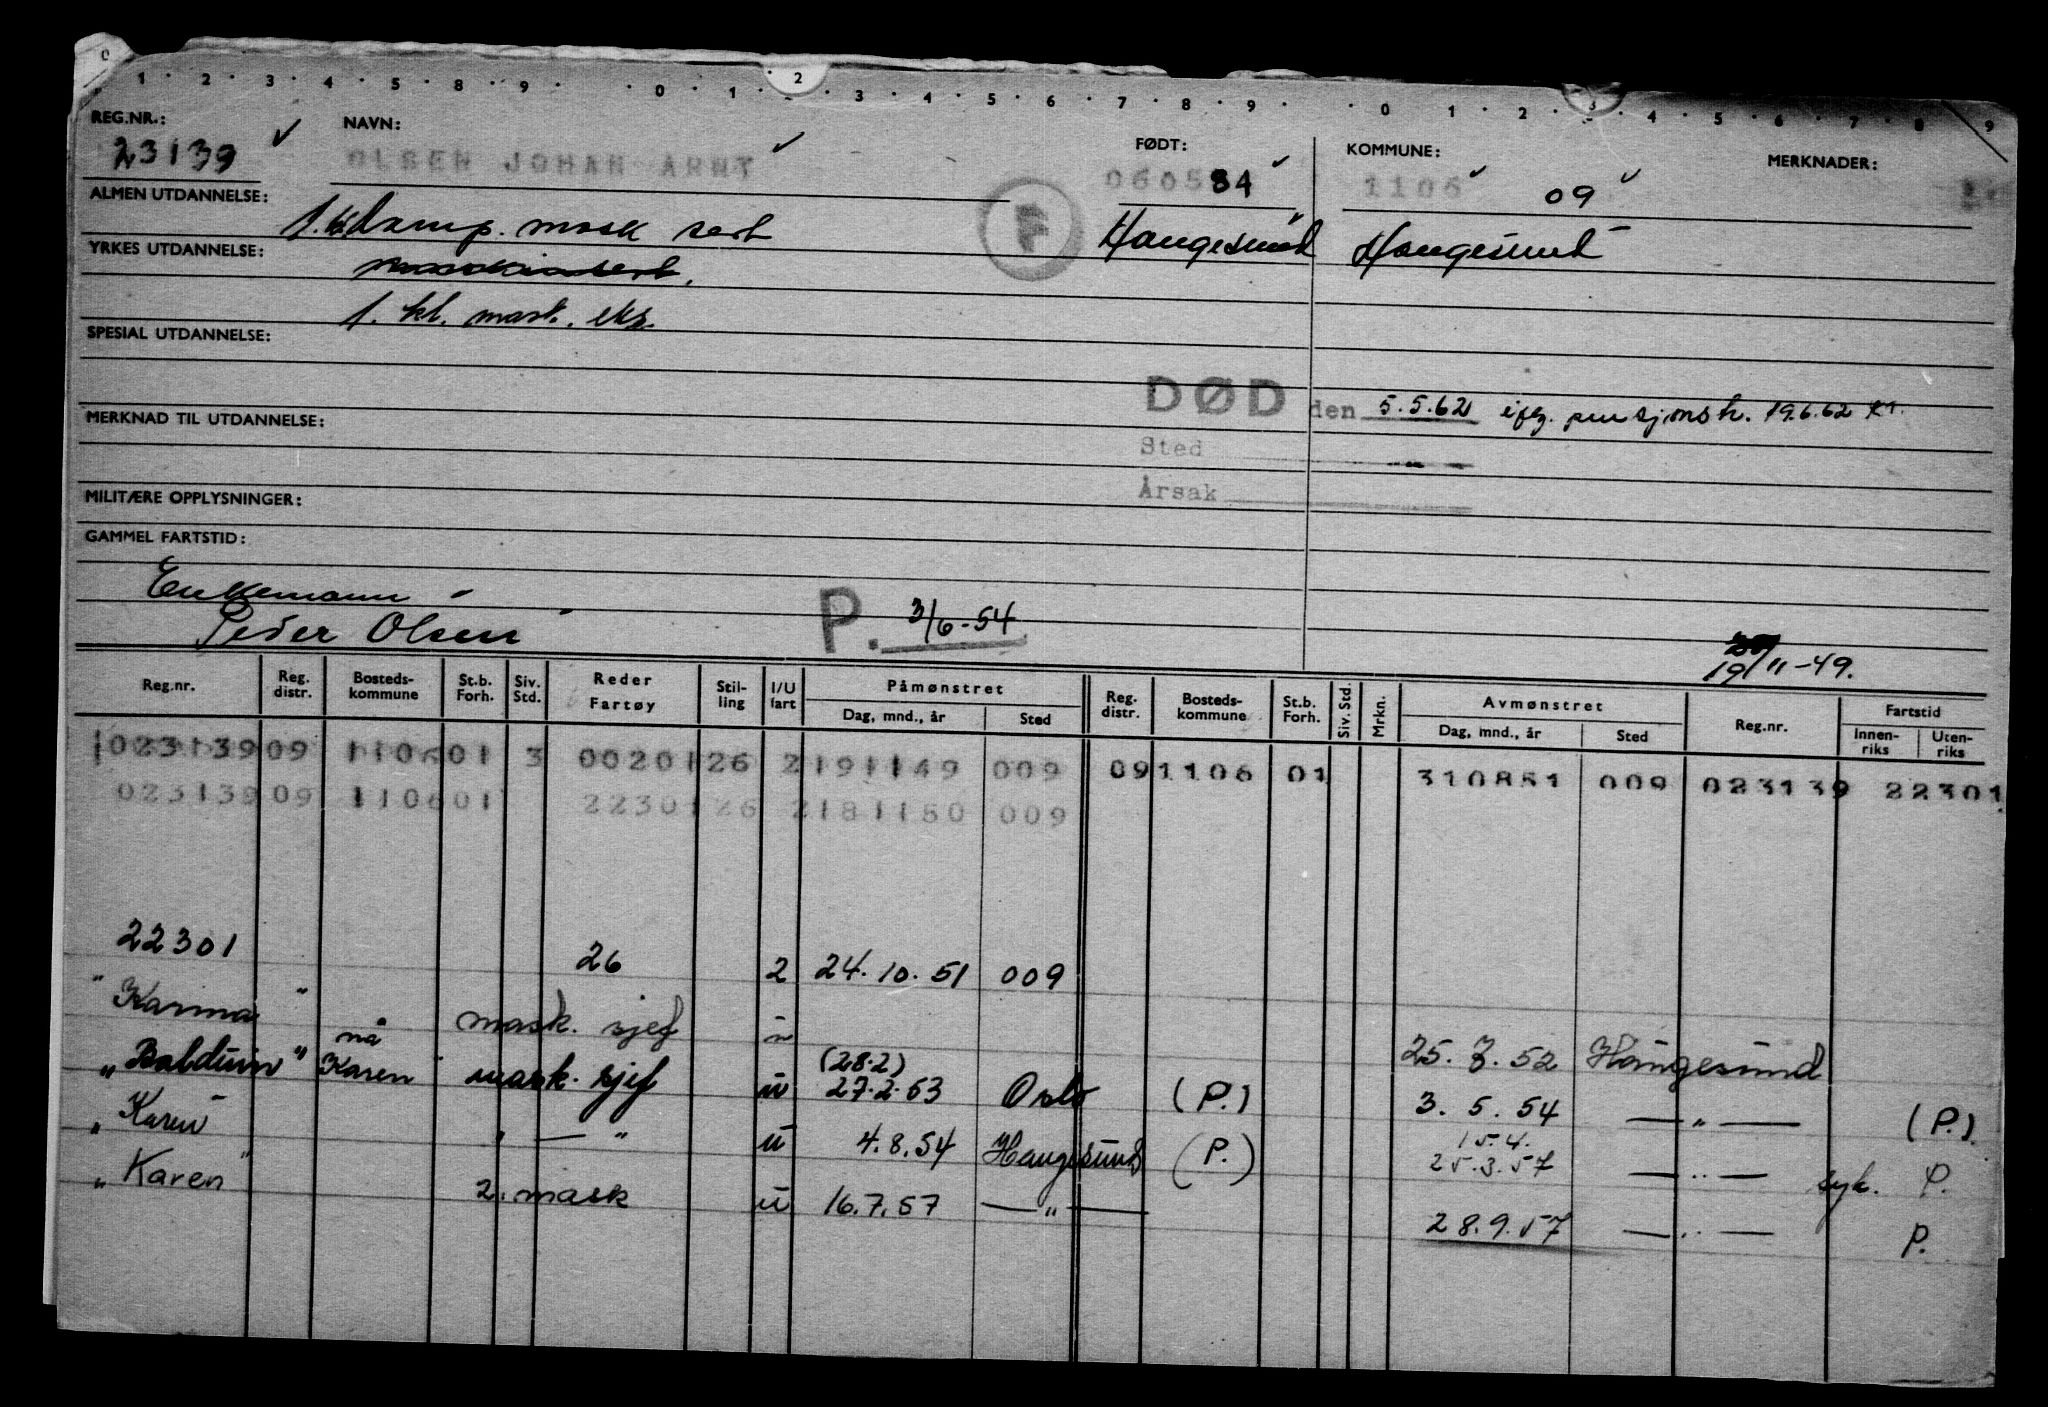 0
1 · 2 · 3 · 4 · 5 · 8 · 9 · · 0 · 1 · 2 · 3 · 4 · 5 · 6 · 7 · 8 · 9 · · 0 · 1 · 2 · 3 · 4 · 5 · 6 · 7 · 8 · 9
REG.NR.: NAVN: FØDT: KOMMUNE: MERKNADER:
23139 OLSEN JOHAN ARNT 060584 1106 09
ALMEN UTDANNELSE: 1. kl. damp. mask sert F Haugesund Haugesund
YRKES UTDANNELSE:
1. kl. mask. eks.
SPESIAL UTDANNELSE:
DØD den 5.5.62 ifg. pensjonsk. 19.6.62
MERKNAD TIL UTDANNELSE:
Sted
Årsak
MILITÆRE OPPLYSNINGER:
GAMMEL FARTSTID:
Enkemann
Peder Olsen P. 3/6-54
19/11-49.
Reg.nr. Reg. distr. Bosteds-kommune St.b. Forh. Siv. Std. Reder Fartøy Stil-ling I/U fart Påmønstret Dag, mnd., år Sted Reg. distr. Bosteds-kommune St.b. Forh. Siv. Std. Mrkn. Avmønstret Dag, mnd., år Sted Reg.nr. Fartstid Innen-riks Uten-riks
023139 09 1106 01 3 0020126 2 191149 009 09 1106 01 310851 009 023139 22301
023139 09 1106 01 2230126 2 181150 009
22301 26 2 24.10.51 009
" Karma " mask. sjef 25.7.52 Haugesund
" Balduin " nå Karen " mask. sjef u (28.2) 27.2.53 Oslo (P.) 3.5.54 — " — (P.)
" Karen " " — " u 4.8.54 Haugesund (P.) 15.4. 25.3.57 — " — syk. P.
" Karen " 2. mask u 16.7.57 — " — 28.9.57 — " — P.